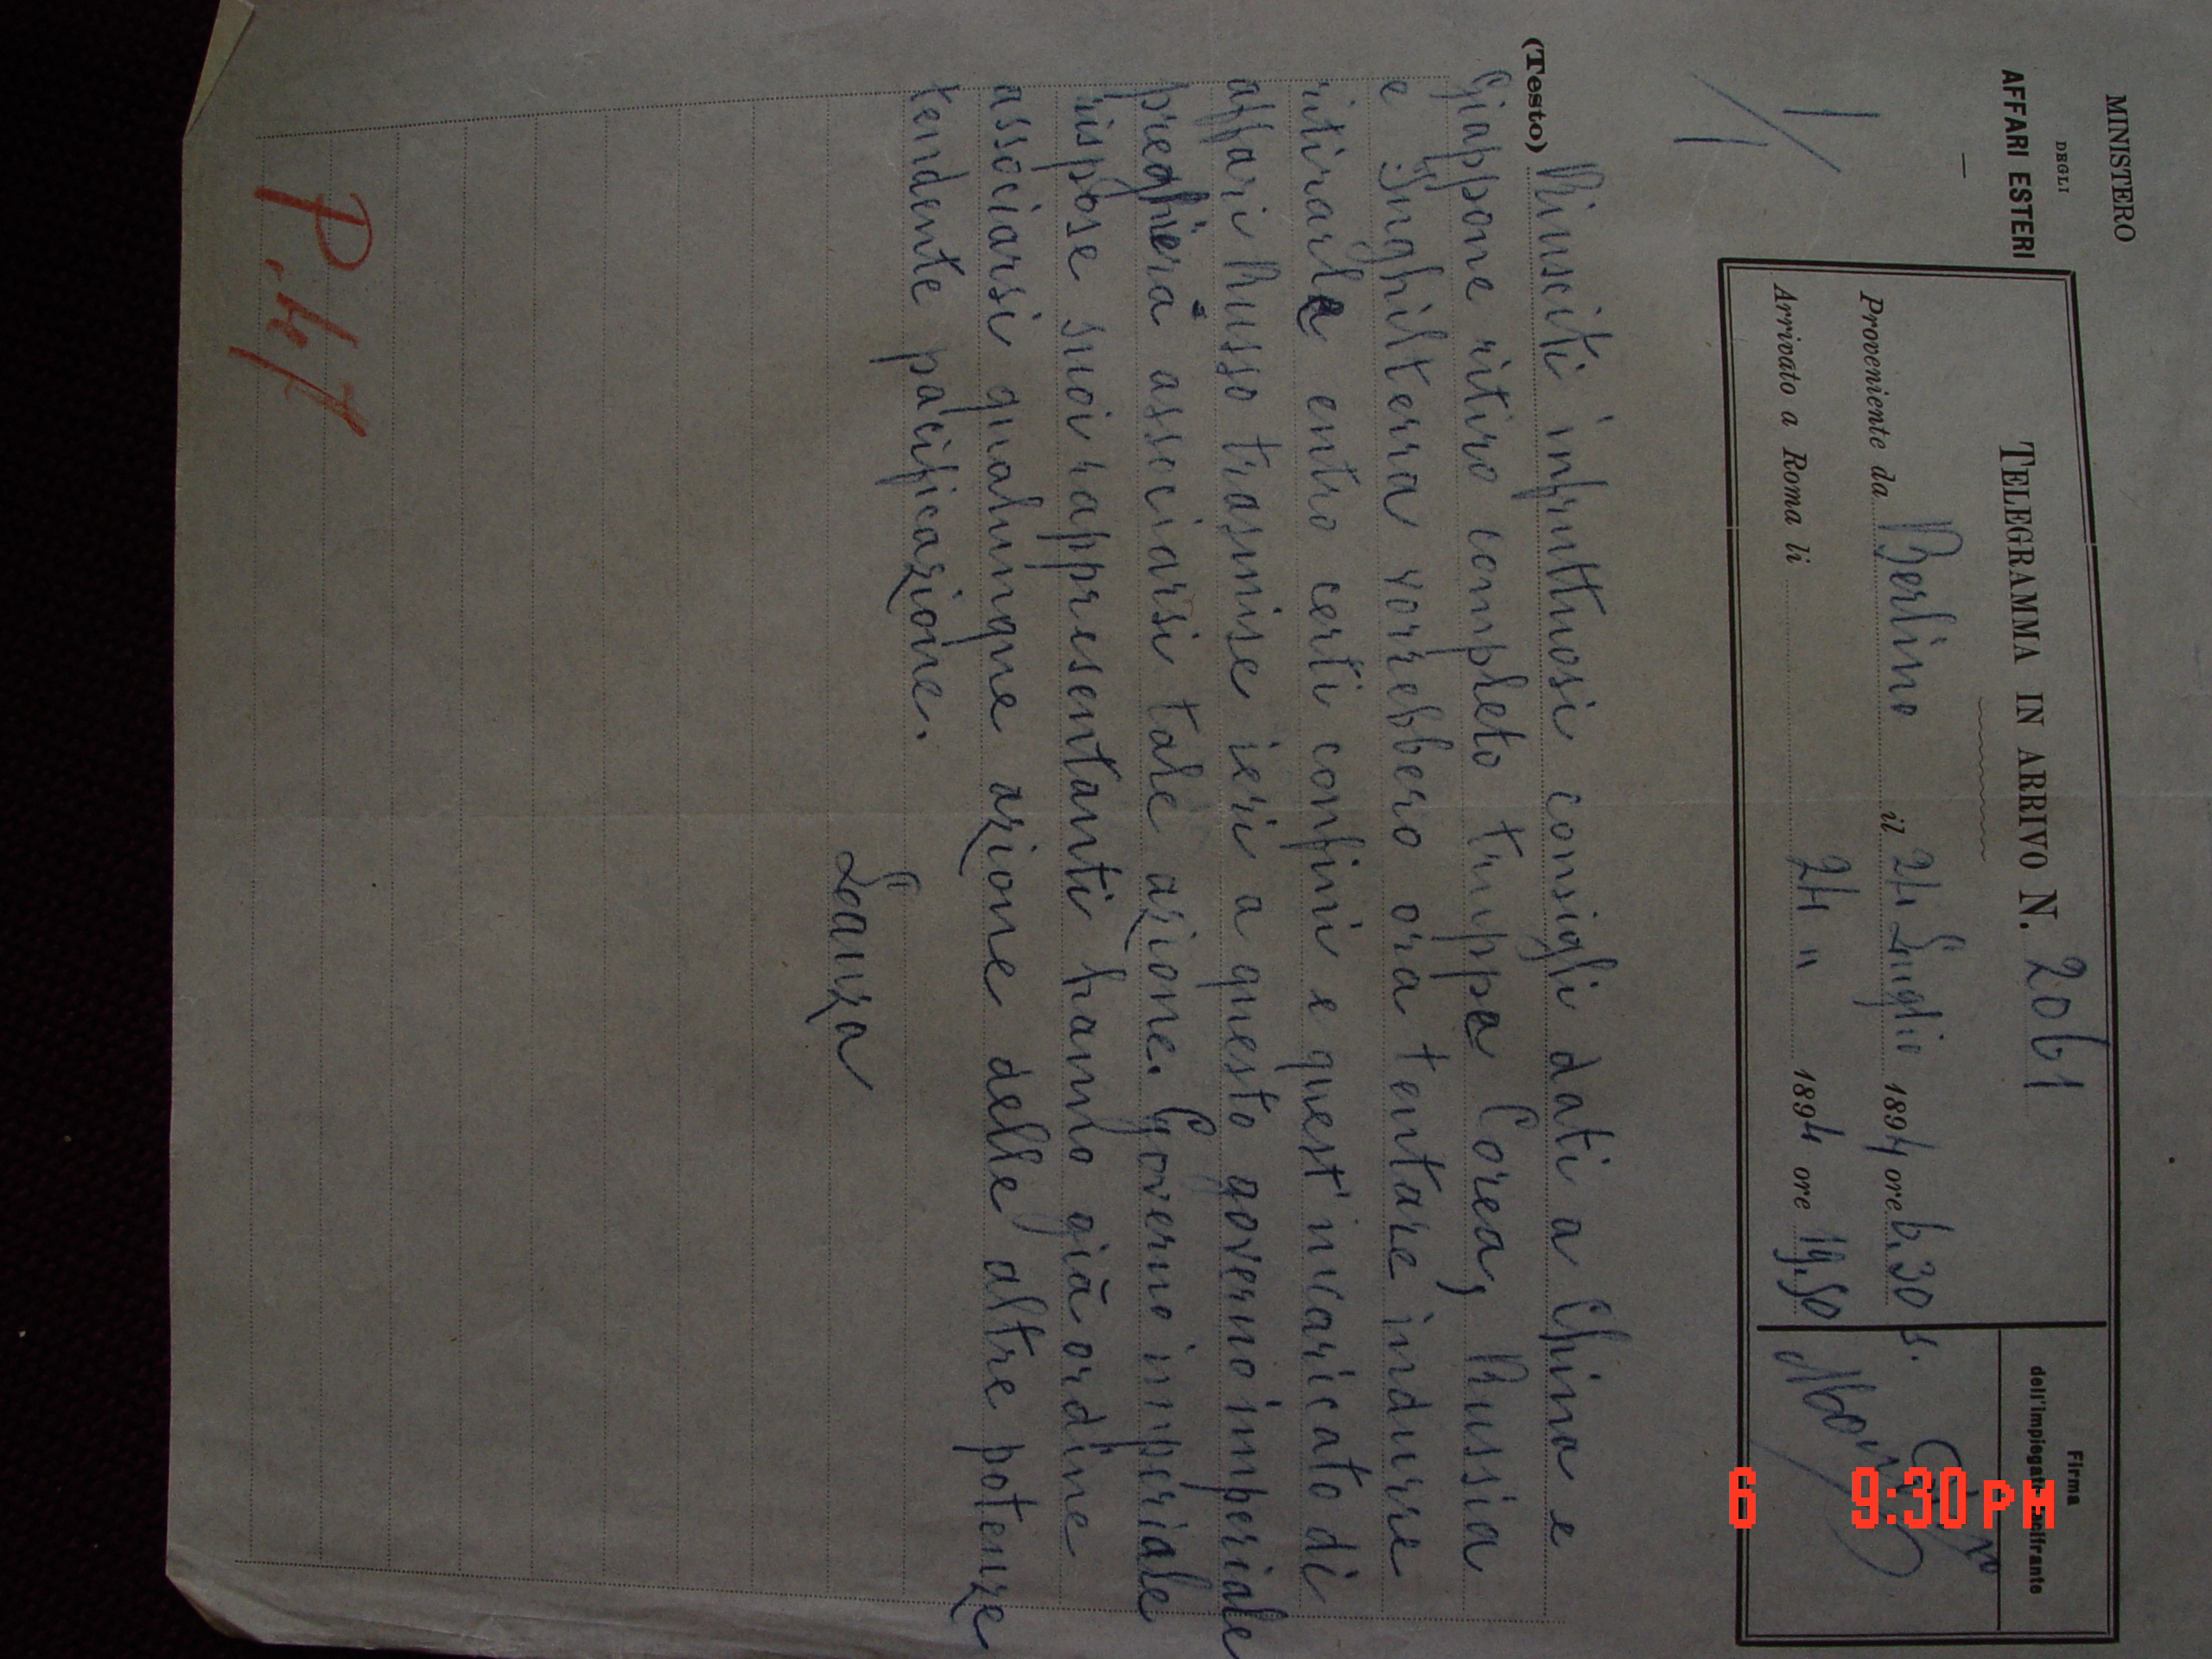 MINISTERO
DEGLI
AFFARI ESTERI
TELEGRAMMA IN ARRIVO N. 2061
Proveniente da Berlino il 24 Luglio 1894 ore 6.30 s.
Arrivato a Roma li 24 " 1894 ore 19.50
Firma
dell'impiegato decifrante
(Testo) Riusciti infruttuosi consigli dati a China e
Giappone ritiro completo truppe Corea, Russia
e Inghilterra vorrebbero ora tentare indurre
ritirarle entro certi confini e quest'incaricato di
affari Russo trasmise ieri a questo governo imperiale
preghiera associarsi tale azione. Governo imperiale
rispose suoi rappresentanti hanno già ordine
associarsi qualunque azione delle altre potenze
tendente pacificazione.
Lanza
6 9:30PM